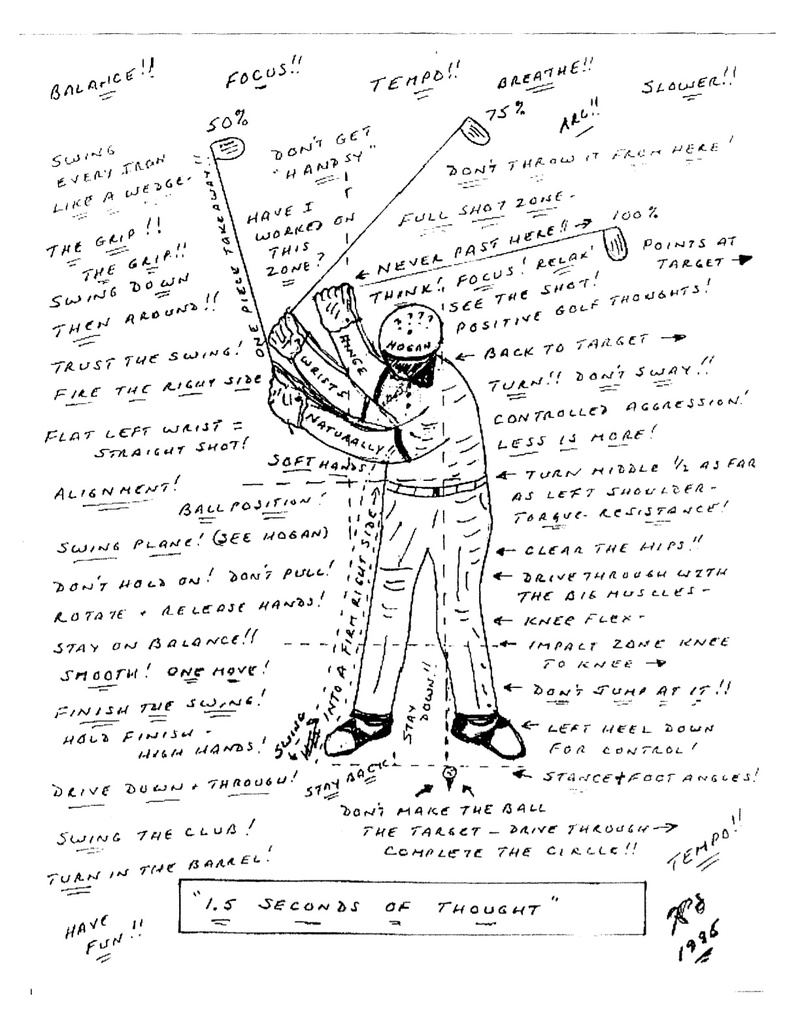 BALANCE!!
FOCUS!!
TEMPO!!
BREATHE!!
SLOWER!!
50%
75%
ARC!!
SWING
EVERY IRON
LIKE A WEDGE-!!
DON'T GET
"HANDSY"
DON'T THROW IT FROM HERE!
THE GRIP!!
THE GRIP!!
HAVE I
WORKED ON
THIS
ZONE?
FULL SHOT ZONE-
100%
← NEVER PAST HERE!! →
POINTS AT
TARGET →
ONE PIECE TAKEAWAY
SWING DOWN
THEN AROUND!!
THINK!, FOCUS! RELAX!
SEE THE SHOT!
POSITIVE GOLF THOUGHTS!
TRUST THE SWING!
FIRE THE RIGHT SIDE
????
HOGAN
HINGE
WRISTS
NATURALLY!!
← BACK TO TARGET →
TURN!! DON'T SWAY!!
CONTROLLED AGGRESSION!
LESS IS MORE!
FLAT LEFT WRIST =
STRAIGHT SHOT!
SOFT HANDS!
← TURN MIDDLE 1/2 AS FAR
AS LEFT SHOULDER-
TORQUE-RESISTANCE!
ALIGNMENT!
BALL POSITION!
SWING PLANE! (SEE HOGAN)
← CLEAR THE HIPS!!
DON'T HOLD ON! DON'T PULL!
← DRIVE THROUGH WITH
THE BIG MUSCLES-
ROTATE + RELEASE HANDS!
← KNEE FLEX-
STAY ON BALANCE!!
← IMPACT ZONE KNEE
TO KNEE →
SMOOTH! ONE MOVE!
← DON'T JUMP AT IT!!
FINISH THE SWING!
HOLD FINISH -
HIGH HANDS!
SWING
INTO A FIRM RIGHT SIDE
STAY
DOWN!!
← LEFT HEEL DOWN
FOR CONTROL!
DRIVE DOWN + THROUGH!
STAY BACK!
← STANCE + FOOT ANGLES!
DON'T MAKE THE BALL
THE TARGET - DRIVE THROUGH →
COMPLETE THE CIRCLE!!
SWING THE CLUB!
TURN IN THE BARREL!
TEMPO!!
"1.5 SECONDS OF THOUGHT"
HAVE
FUN!!